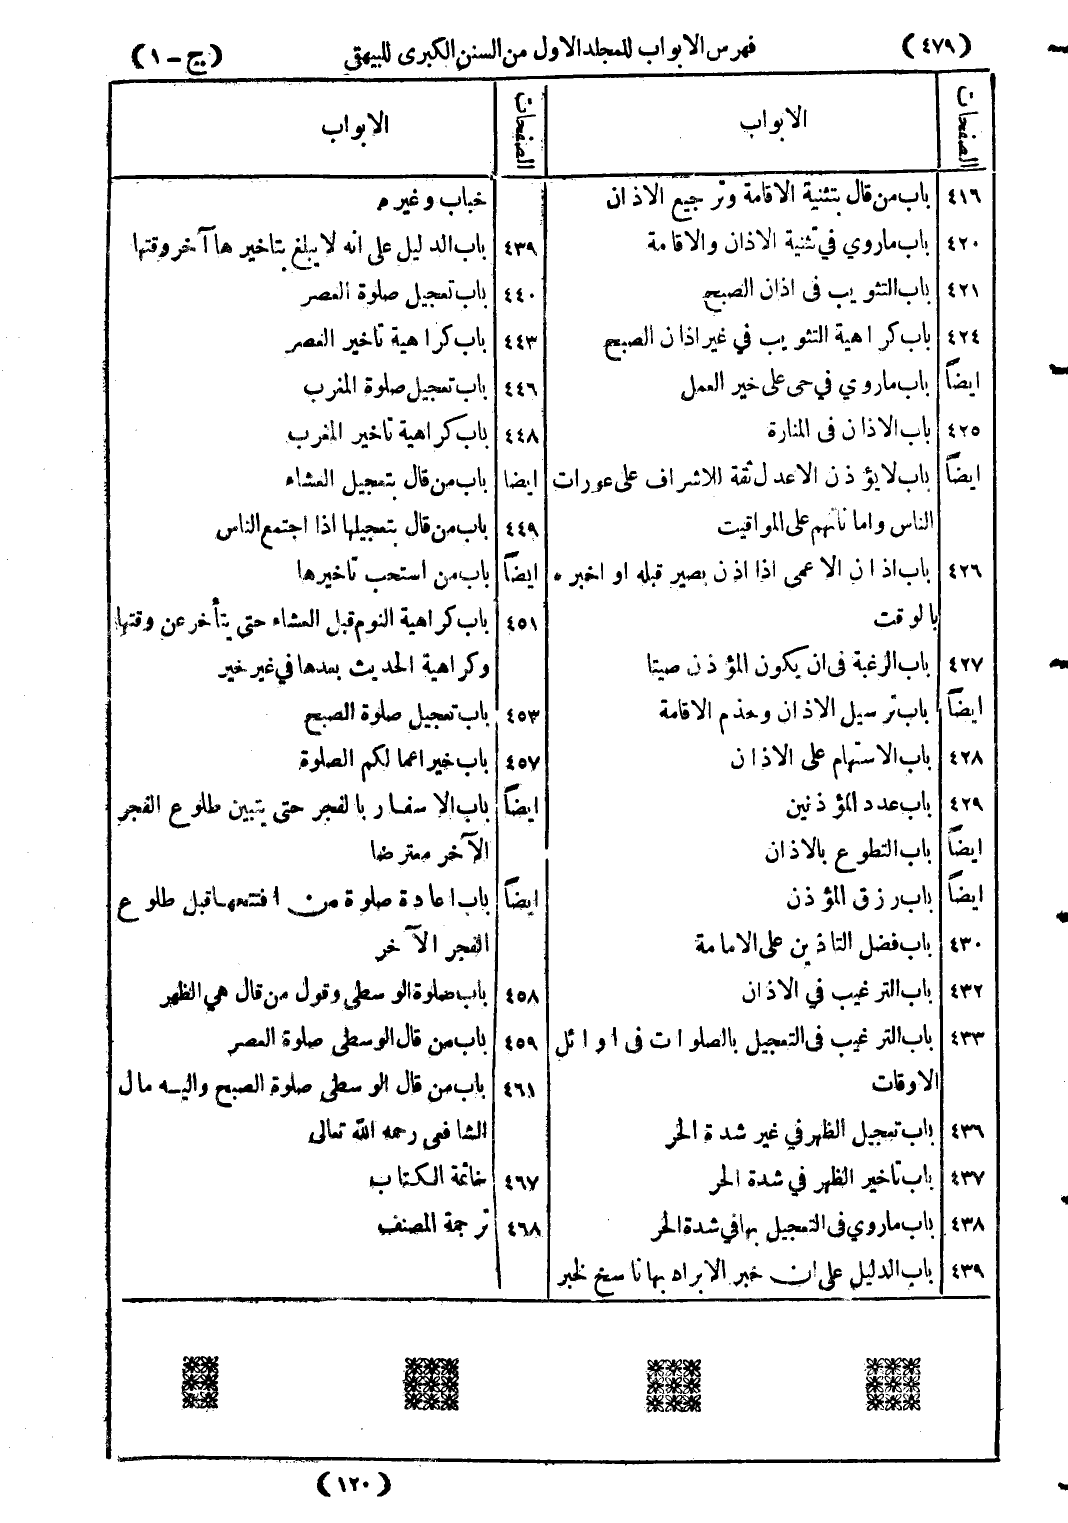 (٤٧٩) فهرس الابواب للمجلد الاول من السنن الكبرى للبيهقى (ج - ١)
الصفحات الابواب
٤١٦ باب من قال بتثنية الاقامة وترجيع الاذان
٤٢٠ باب ماروي في تثنية الاذان والاقامة
٤٢١ باب التثويب فى اذان الصبح
٤٢٤ باب كراهية التثويب في غير اذان الصبح
ايضاً باب ماروي في حى على خير العمل
٤٢٥ باب الاذان فى المنارة
ايضاً باب لايؤذن الاعدل ثقة للاشراف على عورات
الناس واماناتهم على المواقيت
٤٢٦ باب اذان الاعمى اذا اذن بصير قبله او اخبره
بالوقت
٤٢٧ باب الرغبة فى ان يكون المؤذن صيتا
ايضاً باب ترسيل الاذان وحذم الاقامة
٤٢٨ باب الاستهام على الاذان
٤٢٩ باب عدد المؤذنين
ايضاً باب التطوع بالاذان
ايضاً باب رزق المؤذن
٤٣٠ باب فضل التاذين على الامامة
٤٣٢ باب الترغيب في الاذان
٤٣٣ باب الترغيب فى التعجيل بالصلوات فى اوائل
الاوقات
٤٣٦ باب تعجيل الظهر في غير شدة الحر
٤٣٧ باب تاخير الظهر في شدة الحر
٤٣٨ باب ماروي فى التعجيل بها في شدة الحر
٤٣٩ باب الدليل على ان خبر الابراد بها ناسخ لخبر
الصفحات الابواب
خباب وغيره
٤٣٩ باب الدليل على انه لايبلغ بتاخيرها آخر وقتها
٤٤٠ باب تعجيل صلوة العصر
٤٤٣ باب كراهية تاخير العصر
٤٤٦ باب تعجيل صلوة المغرب
٤٤٨ باب كراهية تاخير المغرب
ايضا باب من قال بتعجيل العشاء
٤٤٩ باب من قال بتعجيلها اذا اجتمع الناس
ايضاً باب من استحب تاخيرها
٤٥١ باب كراهية النوم قبل العشاء حتى يتأخر عن وقتها
وكراهية الحديث بعدها في غير خير
٤٥٣ باب تعجيل صلوة الصبح
٤٥٧ باب خير اعمالكم الصلوة
ايضاً باب الاسفار بالفجر حتى يتبين طلوع الفجر
الآخر معترضا
ايضاً باب اعادة صلوة من افتتحها قبل طلوع
الفجر الآخر
٤٥٨ باب صلوة الوسطى وقول من قال هي الظهر
٤٥٩ باب من قال الوسطى صلوة العصر
٤٦١ باب من قال الوسطى صلوة الصبح واليه مال
الشافعى رحمه الله تعالى
٤٦٧ خاتمة الكتاب
٤٦٨ ترجمة المصنف
(١٢٠)